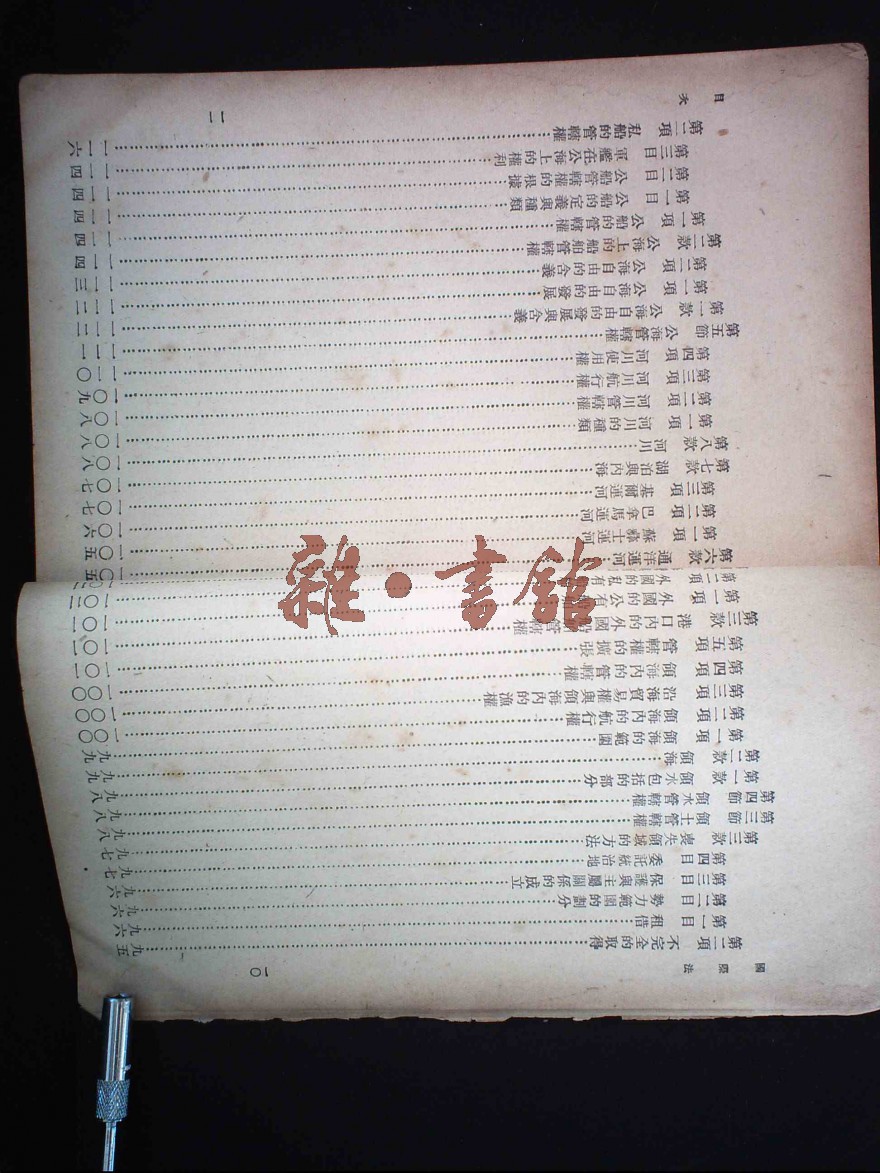 國際法
一〇
第二項 不完全的取得……九五
第一目 租借……九六
第二目 勢力範圍的劃分……九六
第三目 保護與主屬關係的成立……九七
第四目 委託統治地……九七
第三款 喪失領域的方法……九八
第三節 領土管轄權……九八
第四節 領水管轄權……九八
第一款 領水包括的部分……九九
第二款 領海……九九
第一項 領海的範圍……一〇〇
第二項 領海內的航行權……一〇〇
第三項 沿海貿易權與領海內的漁權……一〇〇
第四項 領海內的管轄權……一〇一
第五項 管轄權的擴張……一〇一
第三款 港口內的外國船管轄權……一〇一
第一項 外國的公有船……
第二項 外國的私有……
第六款 通洋運河……一〇五
第一項 蘇彝士運河……一〇五
第二項 巴拿馬運河……一〇六
第三項 基爾運河……一〇七
第七款 湖泊與內海……一〇七
第八款 河川……一〇八
第一項 河川的種類……一〇八
第二項 河川管轄權……一〇八
第三項 河川航行權……一〇九
第四項 河川使用權……一一〇
第五節 公海管轄權……一一一
第一款 公海自由的發展與含義……一一二
第一項 公海自由的發展……一一二
第二項 公海自由的含義……一一三
第二款 公海上的船舶管轄權……一一四
第一項 公船的管轄權……一一四
第一目 公船的定義與種類……一一四
第二目 公船管轄權的根據……一一四
第三目 軍艦在公海上的權利……一一四
第二項 私船的管轄權……一一六
目次
一一
雜·書館